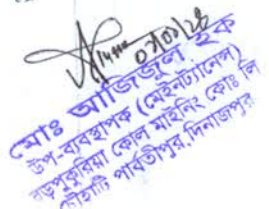 ০৭/০১/২৪
মোঃ আজিজুল হক
উপ-ব্যবস্থাপক (মেইনট্যানেন্স)
বড়পুকুরিয়া কোল মাইনিং কোঃ লি
চৌহাটি পার্বতীপুর, দিনাজপুর